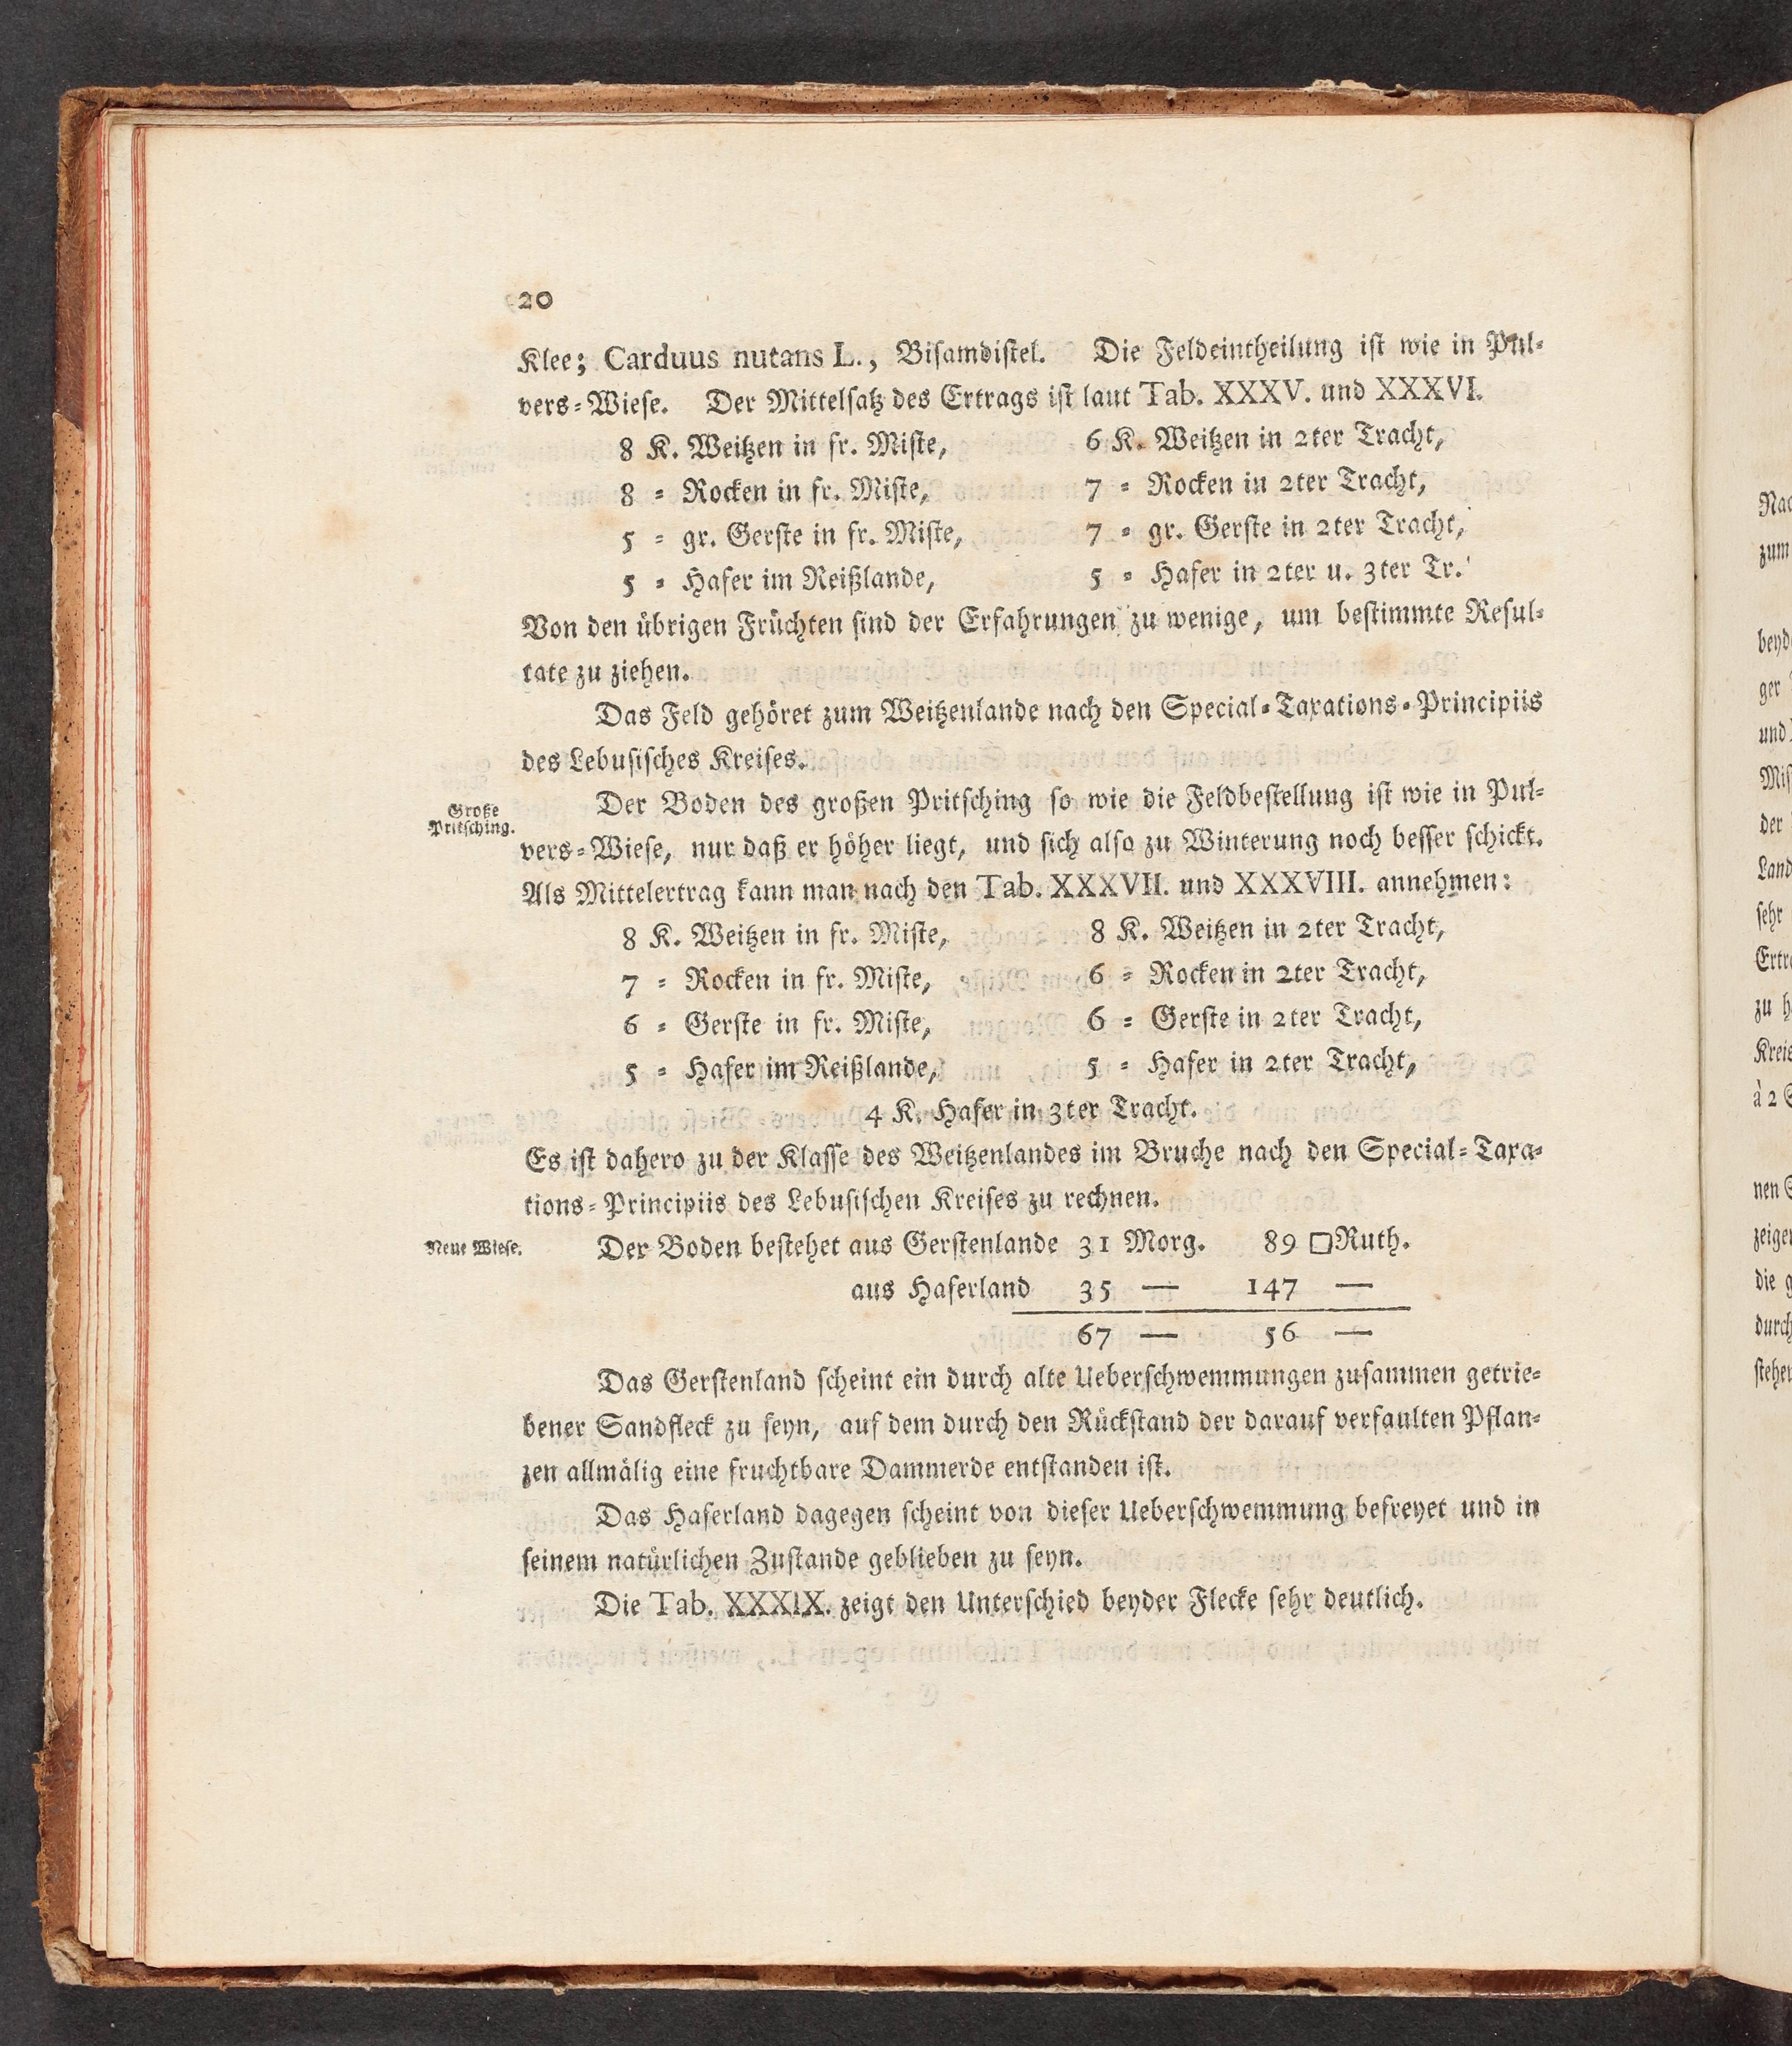 20
Klee; Carduus nutans L., Bisamdistel. Die Feldeintheilung ist wie in Pul-
vers-Wiese. Der Mittelsatz des Ertrags ist laut Tab. XXXV. und XXXVI.
8 K. Weitzen in fr. Miste, 6 K. Weitzen in 2ter Tracht,
8 = Rocken in fr. Miste, 7 = Rocken in 2ter Tracht,
5 = gr. Gerste in fr. Miste, 7 = gr. Gerste in 2ter Tracht,
5 = Hafer im Reißlande, 5 = Hafer in 2ter u. 3ter Tr.
Von den übrigen Früchten sind der Erfahrungen zu wenige, um bestimmte Resul-
tate zu ziehen.
Das Feld gehöret zum Weitzenlande nach den Special-Taxations-Principiis
des Lebusisches Kreises.
Große
Pritsching.
Der Boden des großen Pritsching so wie die Feldbestellung ist wie in Pul-
vers-Wiese, nur daß er höher liegt, und sich also zu Winterung noch besser schickt.
Als Mittelertrag kann man nach den Tab. XXXVII. und XXXVIII. annehmen:
8 K. Weitzen in fr. Miste, 8 K. Weitzen in 2ter Tracht,
7 = Rocken in fr. Miste, 6 = Rocken in 2ter Tracht,
6 = Gerste in fr. Miste, 6 = Gerste in 2ter Tracht,
5 = Hafer im Reißlande, 5 = Hafer in 2ter Tracht,
4 K. Hafer in 3ter Tracht.
Es ist dahero zu der Klasse des Weitzenlandes im Bruche nach den Special-Taxa-
tions-Principiis des Lebusischen Kreises zu rechnen.
Neue Wiese.
Der Boden bestehet aus Gerstenlande 31 Morg. 89 □Ruth.
aus Haferland 35 — 147 —
67 — 56 —
Das Gerstenland scheint ein durch alte Ueberschwemmungen zusammen getrie-
bener Sandfleck zu seyn, auf dem durch den Rückstand der darauf verfaulten Pflan-
zen allmälig eine fruchtbare Dammerde entstanden ist.
Das Haferland dagegen scheint von dieser Ueberschwemmung befreyet und in
seinem natürlichen Zustande geblieben zu seyn.
Die Tab. XXXIX. zeigt den Unterschied beyder Flecke sehr deutlich.